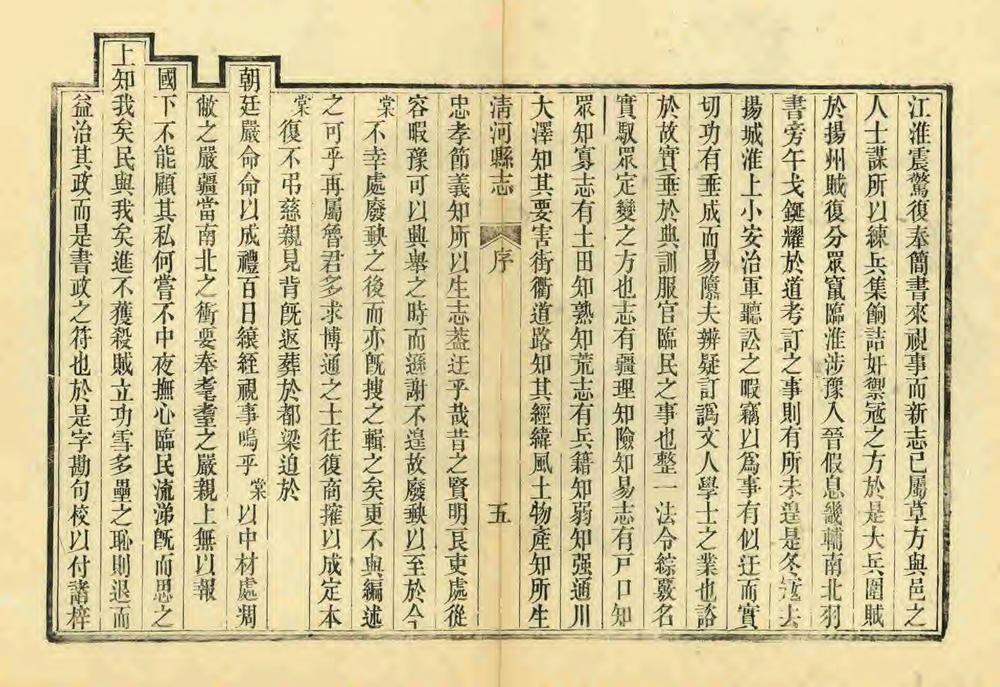 江淮震驚復奉簡書來視事而新志已屬草方與邑之
人士謀所以練兵集餉詰奸禦冦之方於是大兵圍賊
於揚州賊復分眾竄臨淮涉豫入晉假息畿輔南北羽
書旁午戈鋋耀於道考訂之事則有所未遑是冬寇去
揚城淮上小安治軍聽訟之暇竊以爲事有似迂而實
切功有垂成而易隳夫辨疑訂譌文人學士之業也諮
於故實垂於典訓服官臨民之事也整一法令綜覈名
實馭眾定變之方也志有疆理知險知易志有戸口知
眾知寡志有土田知熟知荒志有兵籍知弱知强通川
大澤知其要害街衢道路知其經緯風土物產知所生
清河縣志 序 五
忠孝節義知所以生志葢迂乎哉昔之賢明艮吏處從
容暇豫可以興舉之時而遜謝不遑故廢軼以至於今
棠不幸處廢軼之後而亦旣搜之輯之矣更不與編述
之可乎再屬魯君多求博通之士往復商搉以成定本
棠復不弔慈親見背旣返葬於都梁迫於
朝廷嚴命命以成禮百日縗絰視事嗚乎棠以中材處凋
敝之嚴疆當南北之衝要奉耄耋之嚴親上無以報
國下不能顧其私何嘗不中夜撫心臨民流涕旣而思之
上知我矣民與我矣進不獲殺賊立功雪多壘之恥則退而
益治其政而是書政之符也於是字勘句校以付諸梓